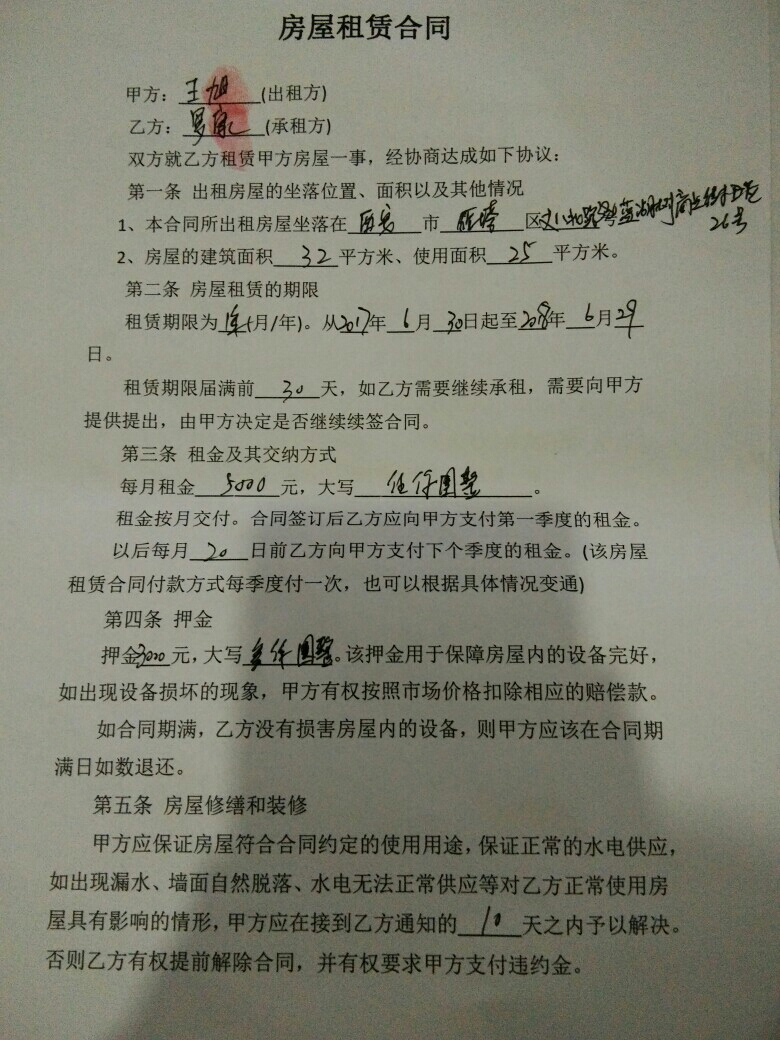 房屋租赁合同
甲方：王旭(出租方)
乙方：罗(承租方)
双方就乙方租赁甲方房屋一事，经协商达成如下协议：
第一条 出租房屋的坐落位置、面积以及其他情况
1、本合同所出租房屋坐落在 西安 市 雁塔 区
26号
2、房屋的建筑面积 32 平方米、使用面积 25 平方米。
第二条 房屋租赁的期限
租赁期限为(月/年)。从2017年 6 月 30日起至2018年 6月29
日。
租赁期限届满前 30 天，如乙方需要继续承租，需要向甲方
提供提出，由甲方决定是否继续续签合同。
第三条 租金及其交纳方式
每月租金 5000 元，大写 伍仟圆整 。
租金按月交付。合同签订后乙方应向甲方支付第一季度的租金。
以后每月 20 日前乙方向甲方支付下个季度的租金。(该房屋
租赁合同付款方式每季度付一次，也可以根据具体情况变通)
第四条 押金
押金3000元，大写叁仟圆整。该押金用于保障房屋内的设备完好，
如出现设备损坏的现象，甲方有权按照市场价格扣除相应的赔偿款。
如合同期满，乙方没有损害房屋内的设备，则甲方应该在合同期
满日如数退还。
第五条 房屋修缮和装修
甲方应保证房屋符合合同约定的使用用途，保证正常的水电供应，
如出现漏水、墙面自然脱落、水电无法正常供应等对乙方正常使用房
屋具有影响的情形，甲方应在接到乙方通知的 10 天之内予以解决。
否则乙方有权提前解除合同，并有权要求甲方支付违约金。